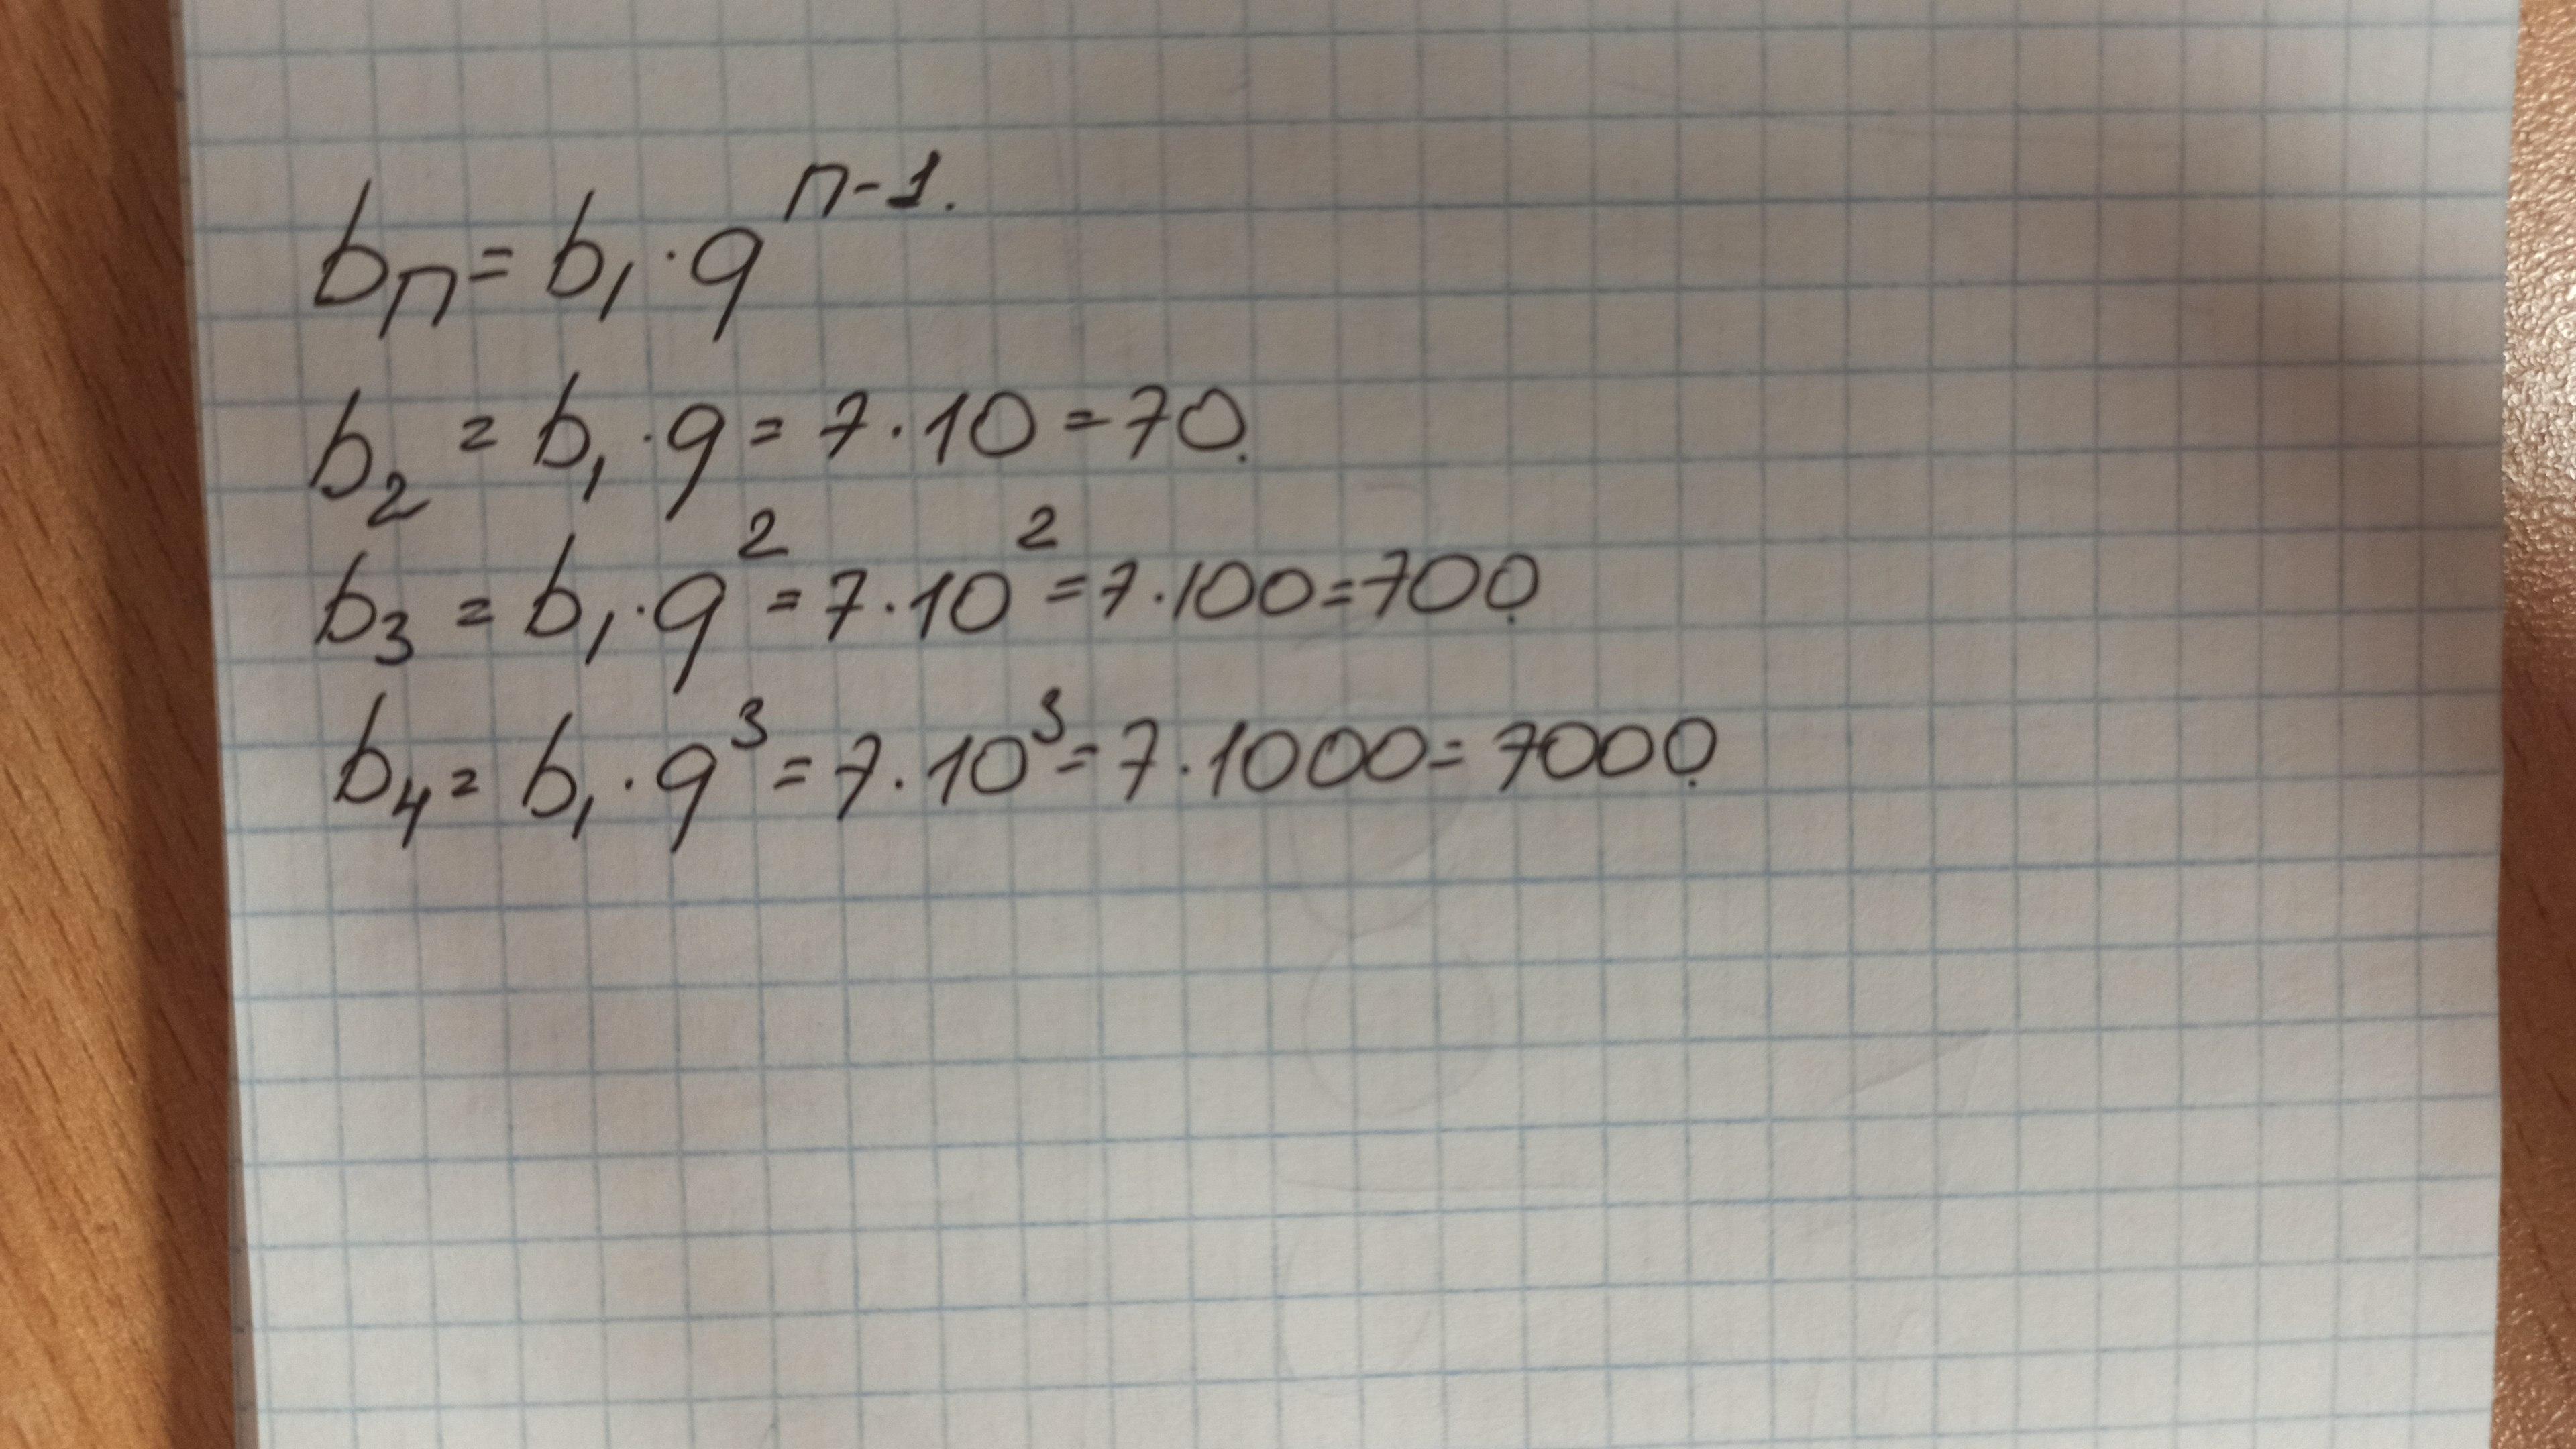 bₙ = b₁ · qⁿ⁻¹.
b₂ = b₁ · q = 7 · 10 = 70.
b₃ = b₁ · q² = 7 · 10² = 7 · 100 = 700.
b₄ = b₁ · q³ = 7 · 10³ = 7 · 1000 = 7000.